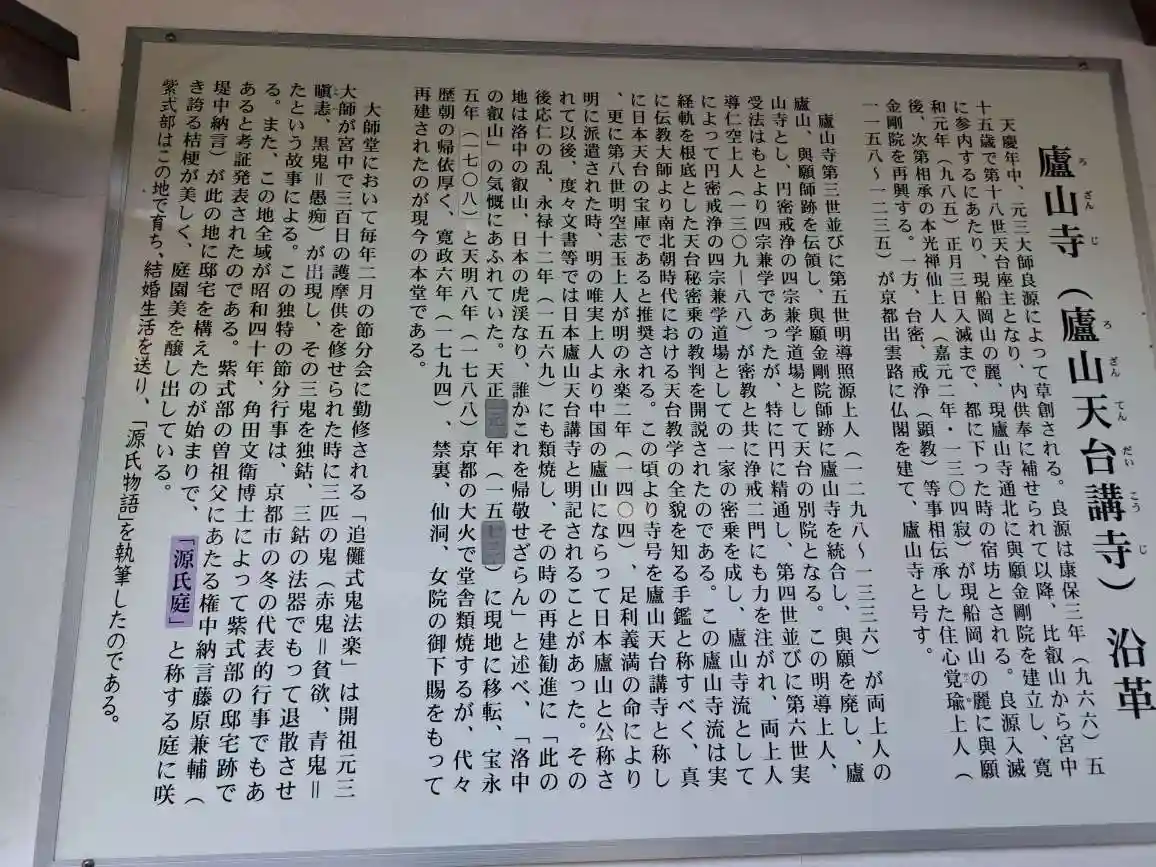 廬山寺（廬山天台講寺）沿革
ろ ざん じ ろ ざん てん だい こう じ
天慶年中、元三大師良源によって草創される。良源は康保三年（九六六）五
十五歳で第十八世天台座主となり、内供奉に補せられて以降、比叡山から宮中
に参内するにあたり、現船岡山の麗、現廬山寺通北に與願金剛院を建立し、寛
和元年（九八五）正月三日入滅まで、都に下った時の宿坊とされる。良源入滅
後、次第相承の本光禅仙上人（嘉元二年・一三〇四寂）が現船岡山の麗に與願
金剛院を再興する。一方、台密、戒浄（顕教）等事相伝承した住心覚瑜上人（
一一五八～一二三五）が京都出雲路に仏閣を建て、廬山寺と号す。
廬山寺第三世並びに第五世明導照源上人（一二九八～一三三六）が両上人の
廬山、與願師跡を伝領し、與願金剛院師跡に廬山寺を統合し、與願を廃し、廬
山寺とし、円密戒浄の四宗兼学道場として天台の別院となる。この明導上人、
受法はもとより四宗兼学であったが、特に円に精通し、第四世並びに第六世実
導仁空上人（一三〇九―八八）が密教と共に浄戒二門にも力を注がれ、両上人
によって円密戒浄の四宗兼学道場としての一家の密乗を成し、廬山寺流として
経軌を根底とした天台秘密乗の教判を開説されたのである。この廬山寺流は実
に伝教大師より南北朝時代における天台教学の全貌を知る手鑑と称すべく、真
に日本天台の宝庫であると推奨される。この頃より寺号を廬山天台講寺と称し
、更に第八世明空志玉上人が明の永楽二年（一四〇四）、足利義満の命により
明に派遣された時、明の唯実上人より中国の廬山にならって日本廬山と公称さ
れて以後、度々文書等では日本廬山天台講寺と明記されることがあった。その
後応仁の乱、永禄十二年（一五六九）にも類焼し、その時の再建勧進に「此の
地は洛中の叡山、日本の虎渓なり、誰かこれを帰敬せざらん」と述べ、「洛中
の叡山」の気慨にあふれていた。天正元年（一五七三）に現地に移転、宝永
五年（一七〇八）と天明八年（一七八八）京都の大火で堂舎類焼するが、代々
歴朝の帰依厚く、寛政六年（一七九四）、禁裏、仙洞、女院の御下賜をもって
再建されたのが現今の本堂である。
大師堂において毎年二月の節分会に勤修される「追儺式鬼法楽」は開祖元三
大師が宮中で三百日の護摩供を修せられた時に三匹の鬼（赤鬼＝貪欲、青鬼＝
瞋恚、黒鬼＝愚痴）が出現し、その三鬼を独鈷、三鈷の法器でもって退散させ
たという故事による。この独特の節分行事は、京都市の冬の代表的行事でもあ
る。また、この地全域が昭和四十年、角田文衛博士によって紫式部の邸宅跡で
あると考証発表されたのである。紫式部の曽祖父にあたる権中納言藤原兼輔（
堤中納言）が此の地に邸宅を構えたのが始まりで、「源氏庭」と称する庭に咲
き誇る桔梗が美しく、庭園美を醸し出している。
紫式部はこの地で育ち、結婚生活を送り、「源氏物語」を執筆したのである。